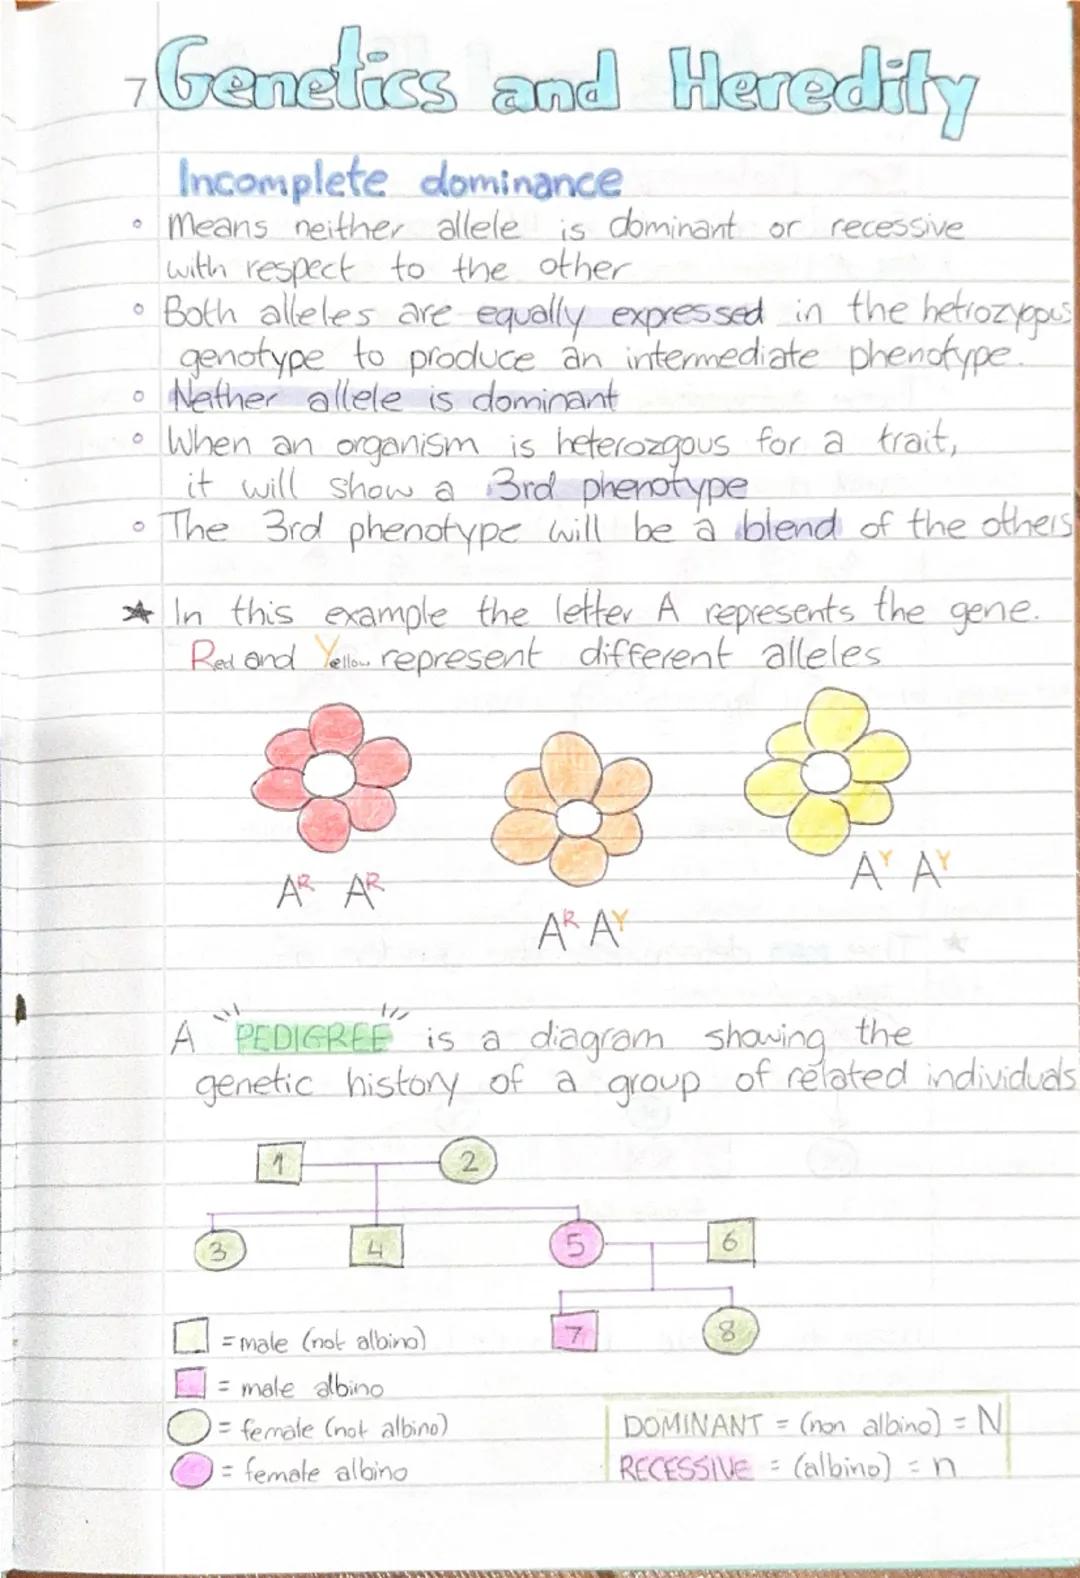 7 Genetics and Heredity
Incomplete dominance
◦ Means neither allele is dominant or recessive
with respect to the other
◦ Both alleles are equally expressed in the hetrozygous
genotype to produce an intermediate phenotype.
◦ Nether allele is dominant
◦ When an organism is heterozgous for a trait,
it will show a 3rd phenotype
◦ The 3rd phenotype will be a blend of the others
★ In this example the letter A represents the gene.
Red and Yellow represent different alleles
Aᴿ Aᴿ
Aᴿ Aʸ
Aʸ Aʸ
A "PEDIGREE" is a diagram showing the
genetic history of a group of related individuals
1 2
3 4 5 6
7 8
= male (not albino)
= male albino
= female (not albino)
= female albino
DOMINANT = (non albino) = N
RECESSIVE = (albino) = n